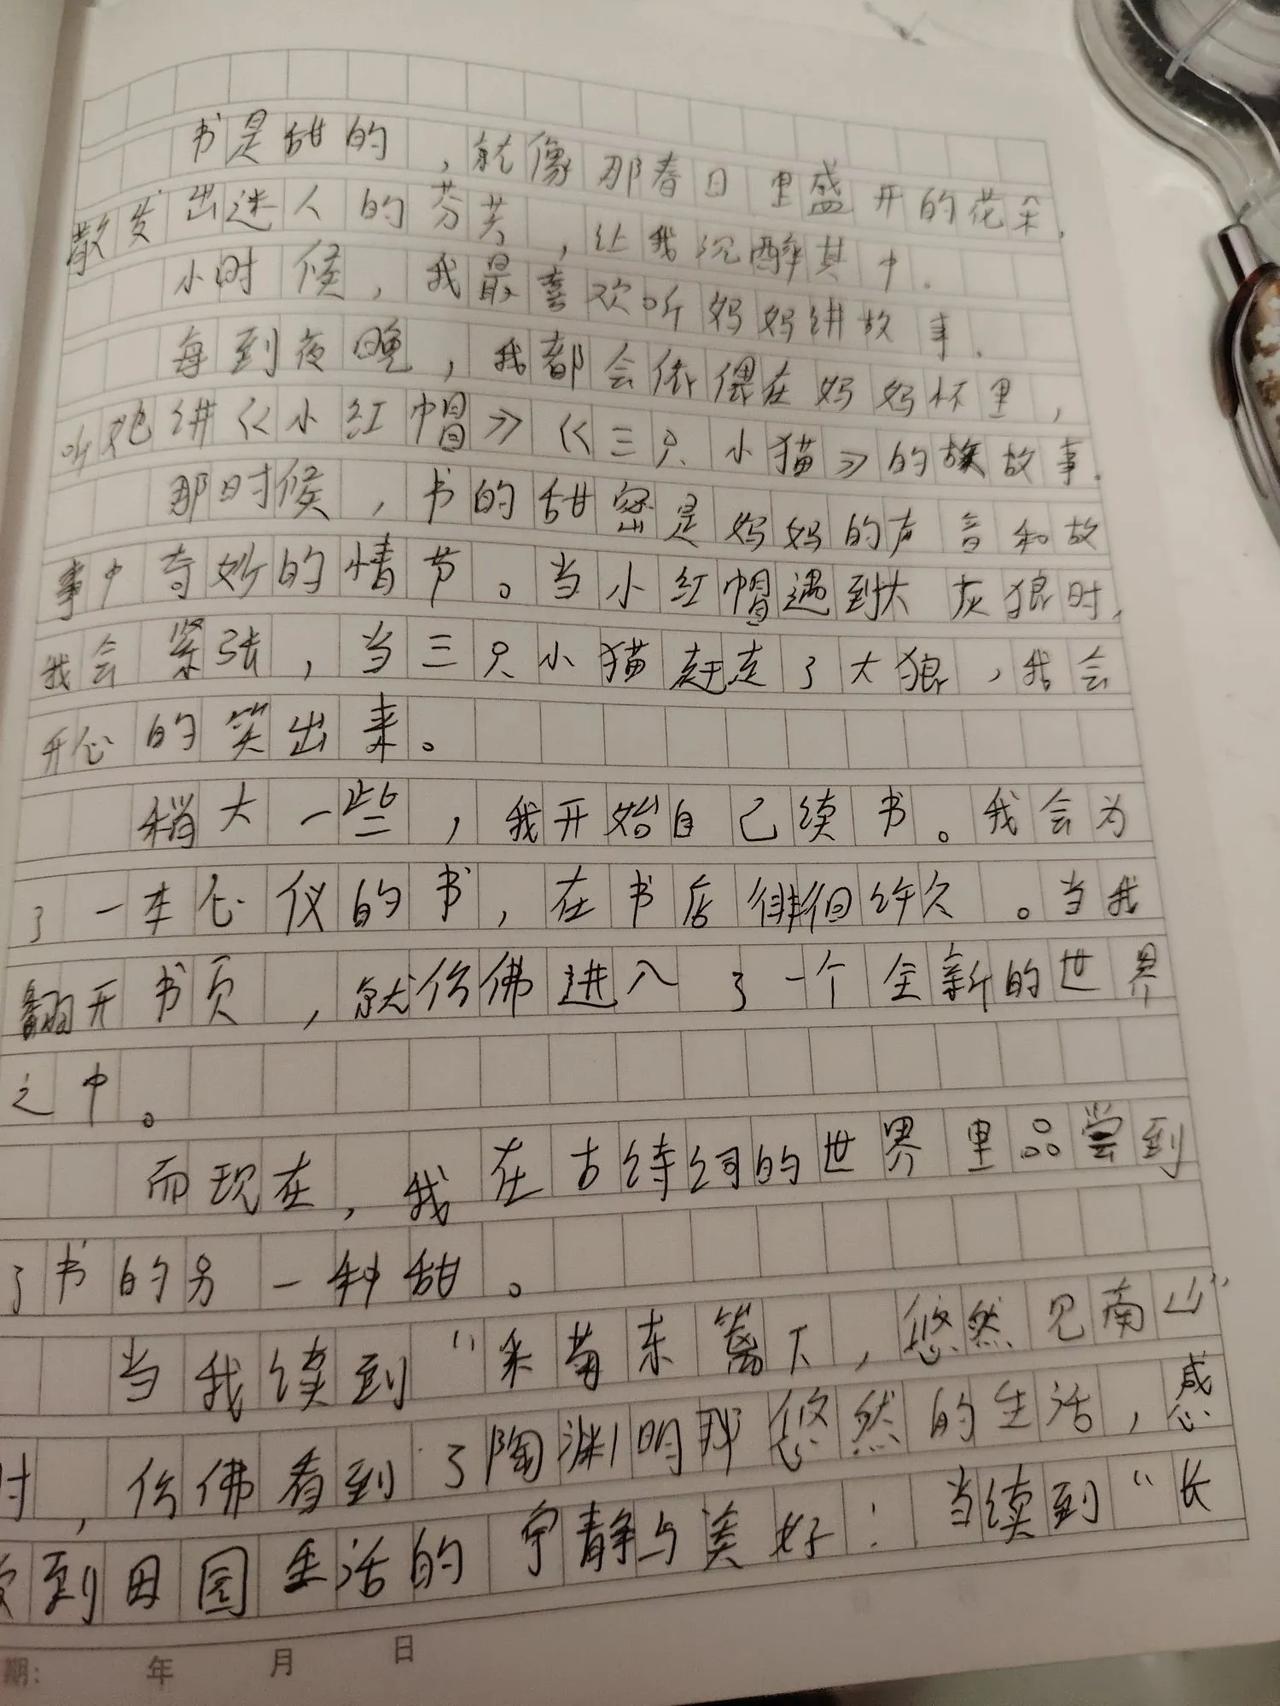 书是甜的，就像那春日里盛开的花朵，
散发出迷人的芬芳，让我沉醉其中。
小时候，我最喜欢听妈妈讲故事。
每到夜晚，我都会依偎在妈妈怀里，
听她讲《小红帽》《三只小猫》的故事。
那时候，书的甜密是妈妈的声音和故
事中奇妙的情节。当小红帽遇到大灰狼时，
我会紧张，当三只小猫赶走了大狼，我会
开心的笑出来。
稍大一些，我开始自己续书。我会为
了一本心仪的书，在书店徘徊许久。当我
翻开书页，就仿佛进入了一个全新的世界
之中。
而现在，我在古诗词的世界里品尝到
了书的另一种甜。
当我续到“采菊东篱下，悠然见南山”
时，仿佛看到了陶渊明那悠然的生活，感
受到田园生活的宁静与美好；当续到“长
期： 年 月 日